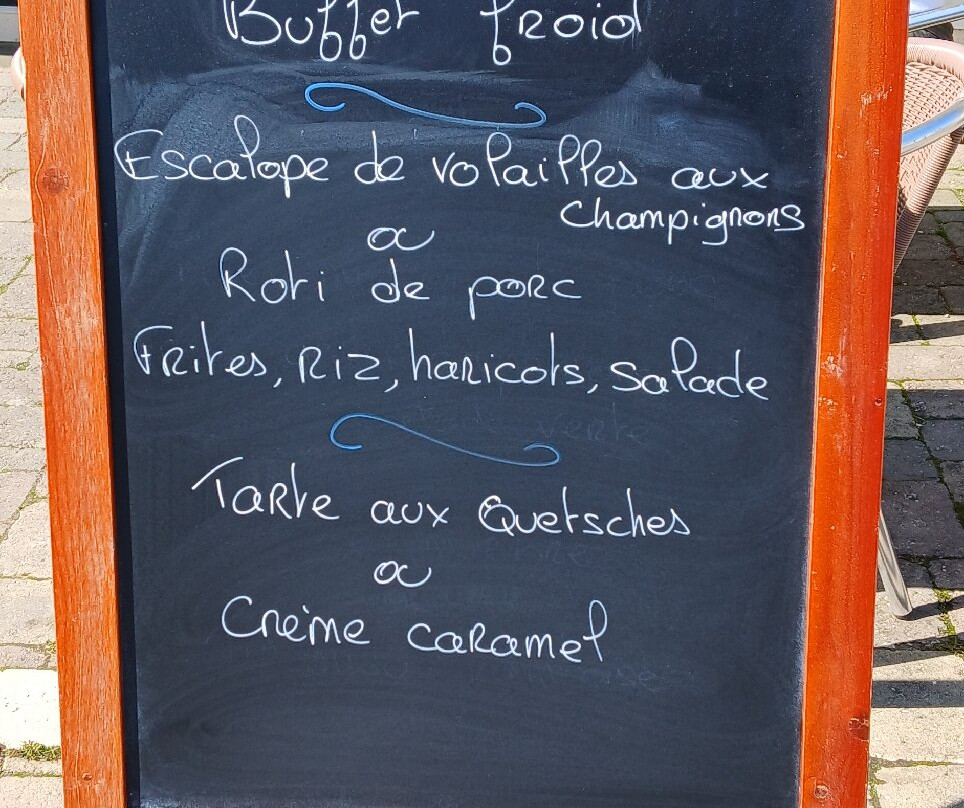 Buffet froid
Escalope de volailles aux
champignons
ou
Roti de porc
Frites, Riz, haricots, salade
Tarte aux Quetsches
ou
Crème caramel